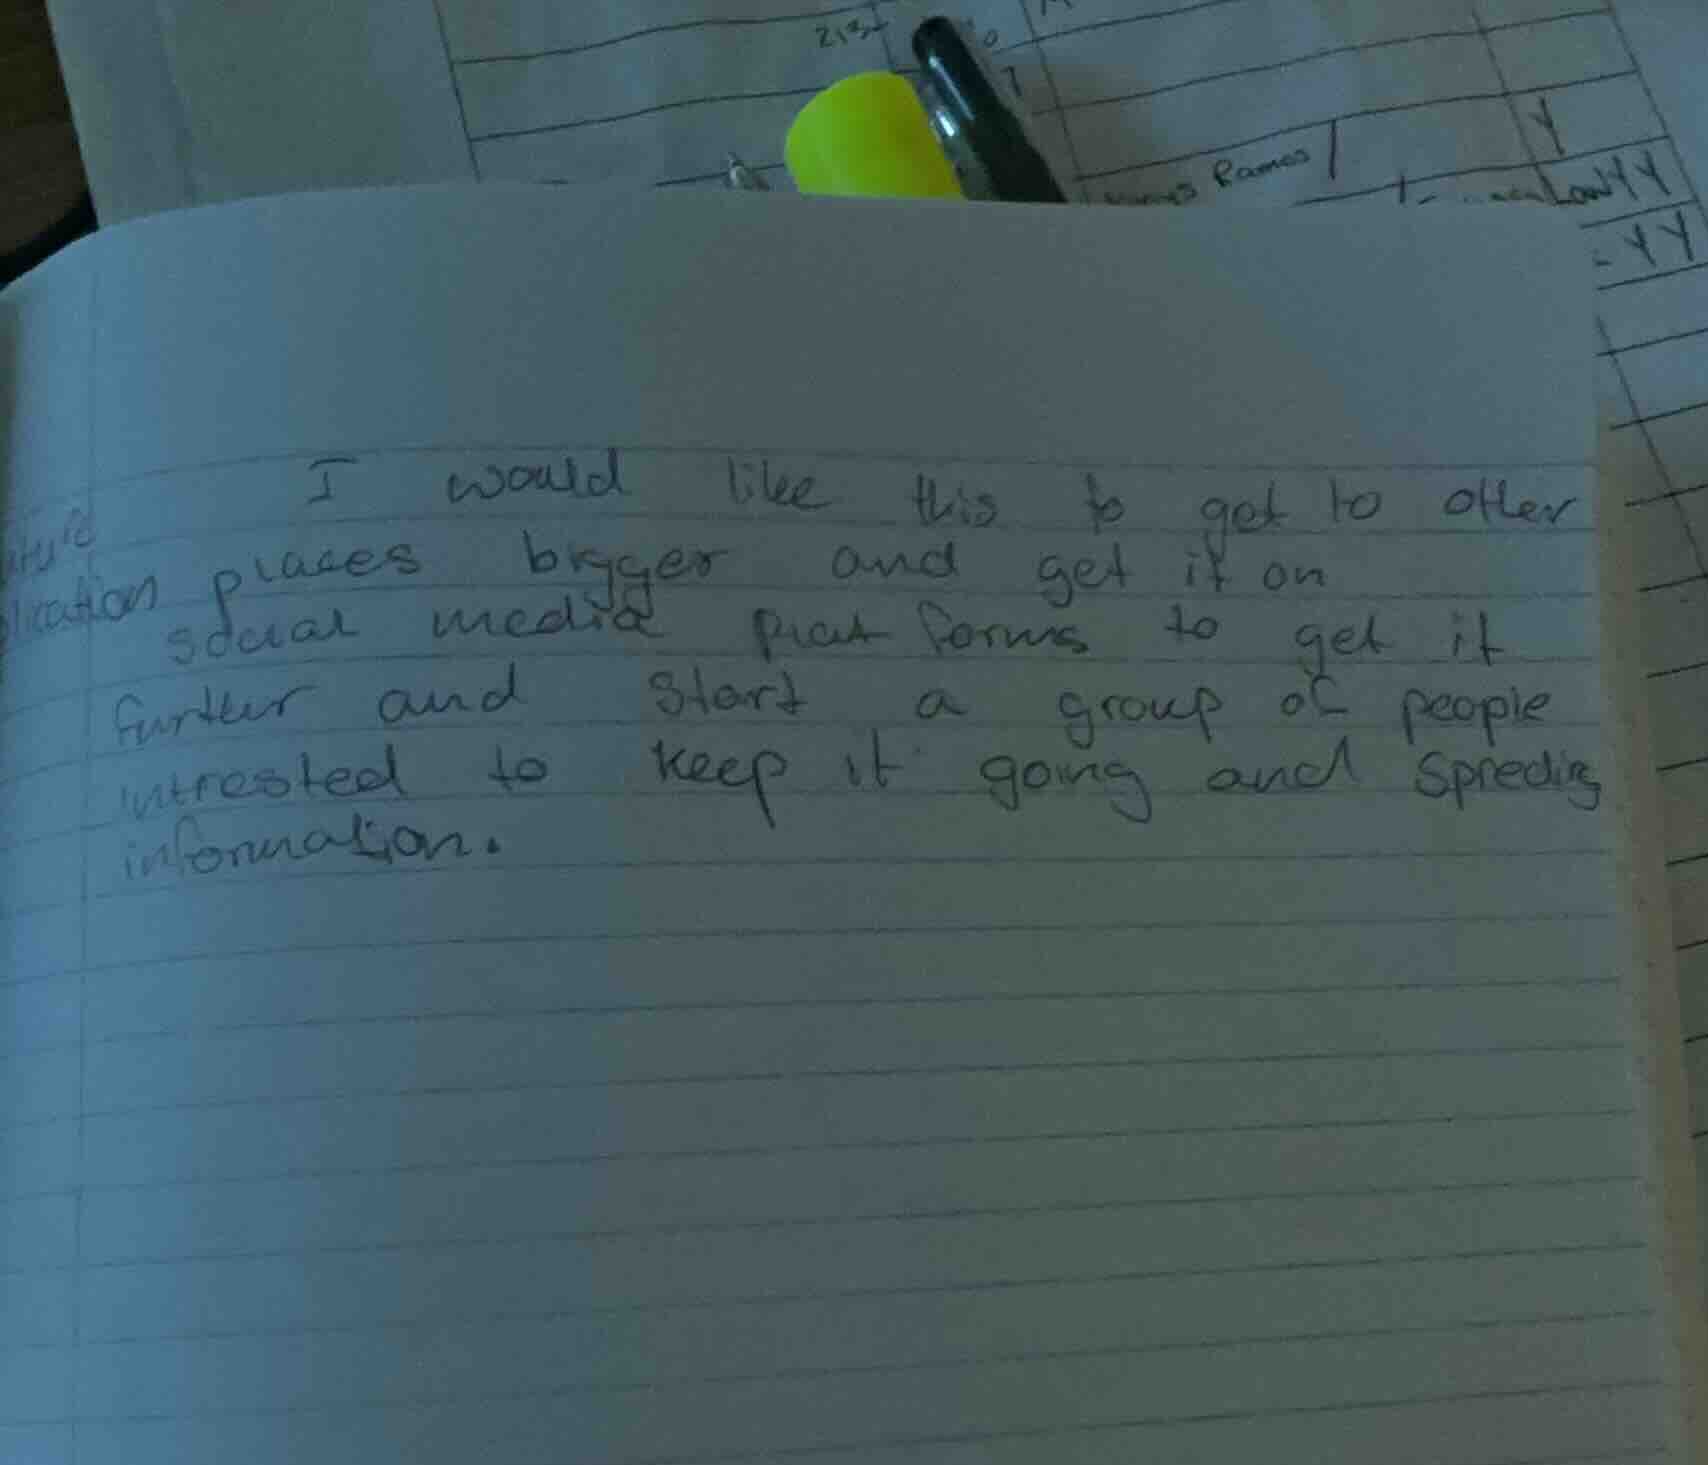 21st
Rames
Y
Law Y Y
Y Y
I would like this to get to other
places bigger and get it on
social media plat forms to get it
further and start a group of people
intrested to keep it going and spreding
information.